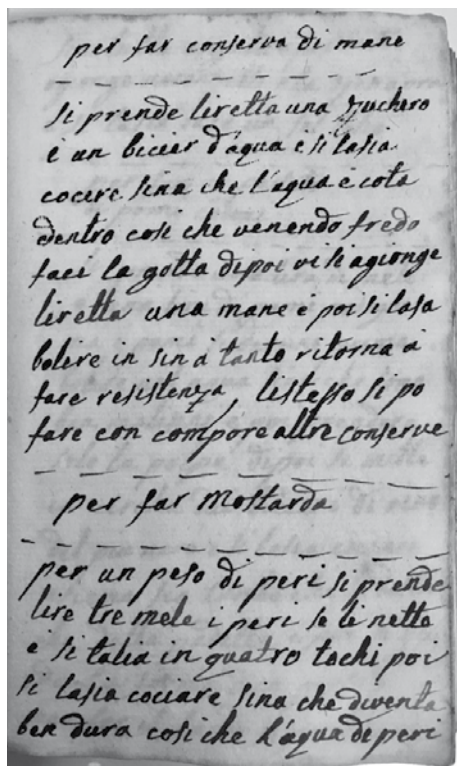 per far conserva di mane
si prende liretta una zuchero
é un bicier d'aqua é si lasia
cocere sina che l'aqua é cota
dentro cosi che venendo fredo
faci la gotta dipoi vi si agionge
liretta una mane é poi si lasa
bolire in sin á tanto ritorna á
fare resistenza, listesso si po
fare con compore altre conserve
per far Mostarda
per un peso di peri si prende
lire tre mele i peri se li netta
é si talia in quatro tochi poi
si lasia cociare sina che diventa
ben dura cosi che l'aqua di peri